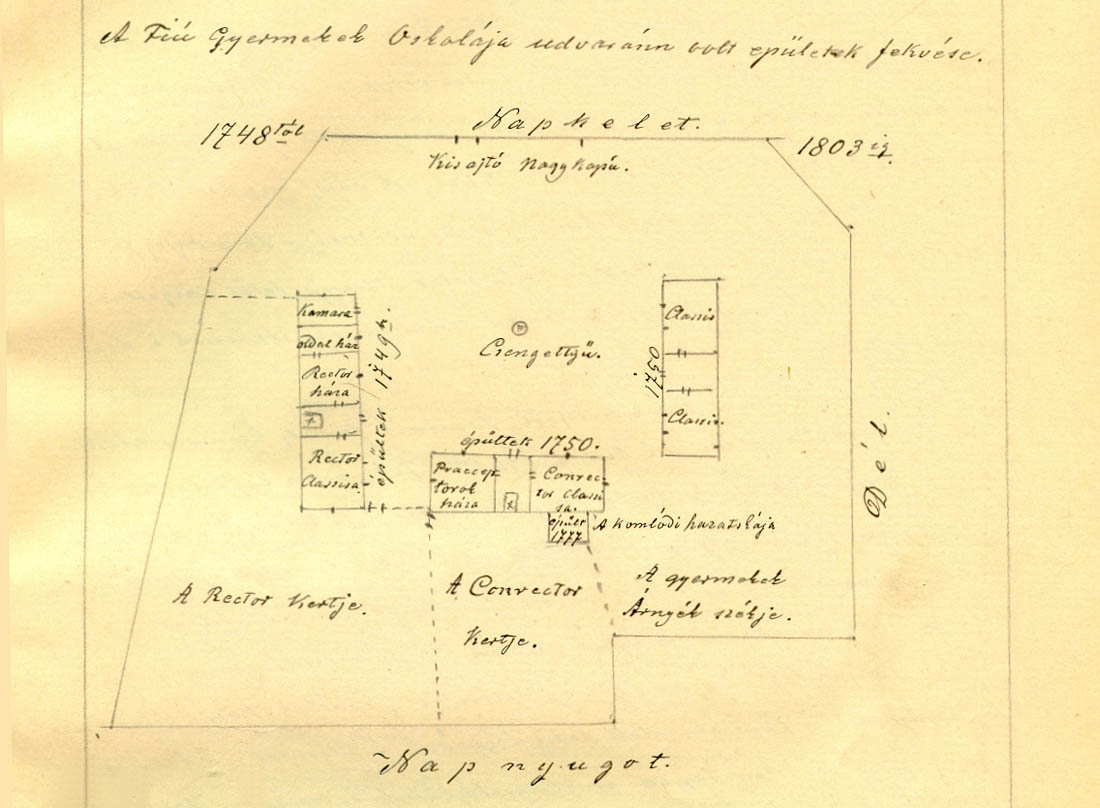 A Fiú Gyermekek Oskolája udvaránn volt épületek fekvése.
Napkelet.
1748 tól
1803 ig.
Kisajtó Nagykapú.
Kamara
oldal ház
Rector
háza
Rector
Classisa.
épültek 1749 b.
Csengettyű.
1750
Classis
Classis.
épültek 1750.
Praecep
torok
háza
Conrec
tor Classi
sa.
épült
1777
A komlódi
A Rector Kertje.
A Conrector
Kertje.
A gyermekek
Árnyék székje.
Dél.
Napnyugot.